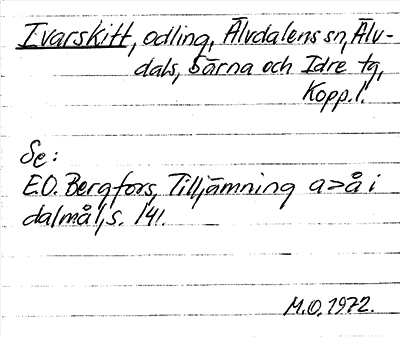 Ivarskitt, odling, Älvdalens sn, Älv-
dals, Särna och Idre tg,
Kopp.l.
Se:
E.O. Bergfors, Tilljämning a>å i
dalmål, s. 141.
M.O. 1972.